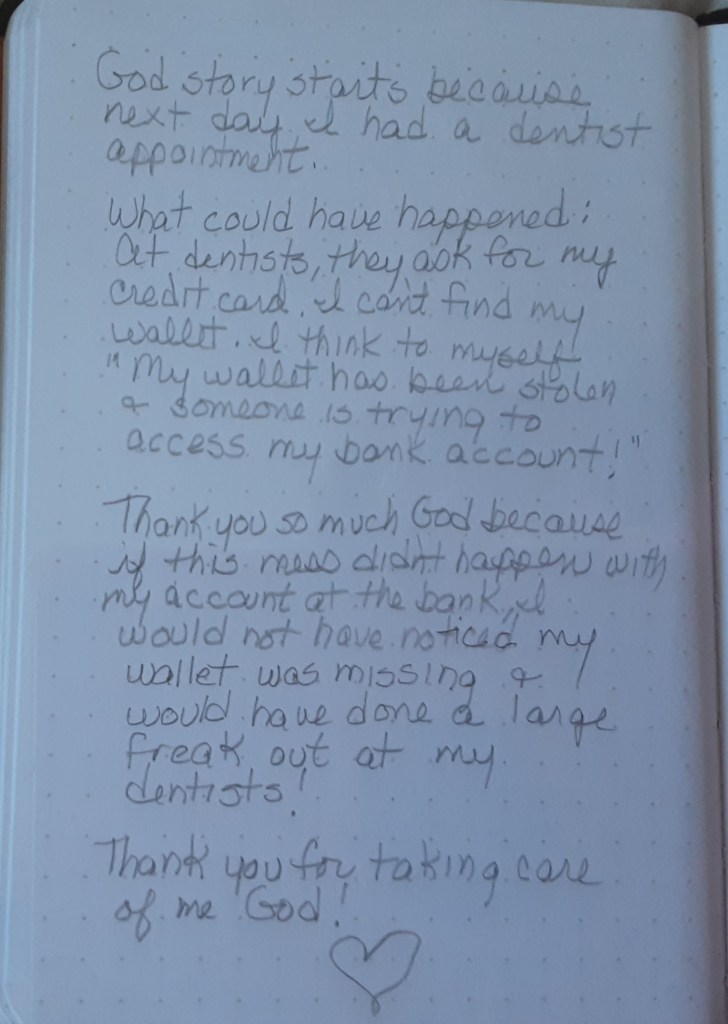 God story starts because
next day I had a dentist
appointment.
What could have happened:
At dentists, they ask for my
credit card. I can't find my
wallet. I think to myself
"My wallet has been stolen
& someone is trying to
access my bank account!"
Thank you so much God because
if this mess didn't happen with
my account at the bank, I
would not have noticed my
wallet was missing &
would have done a large
freak out at my
dentists!
Thank you for taking care
of me God!